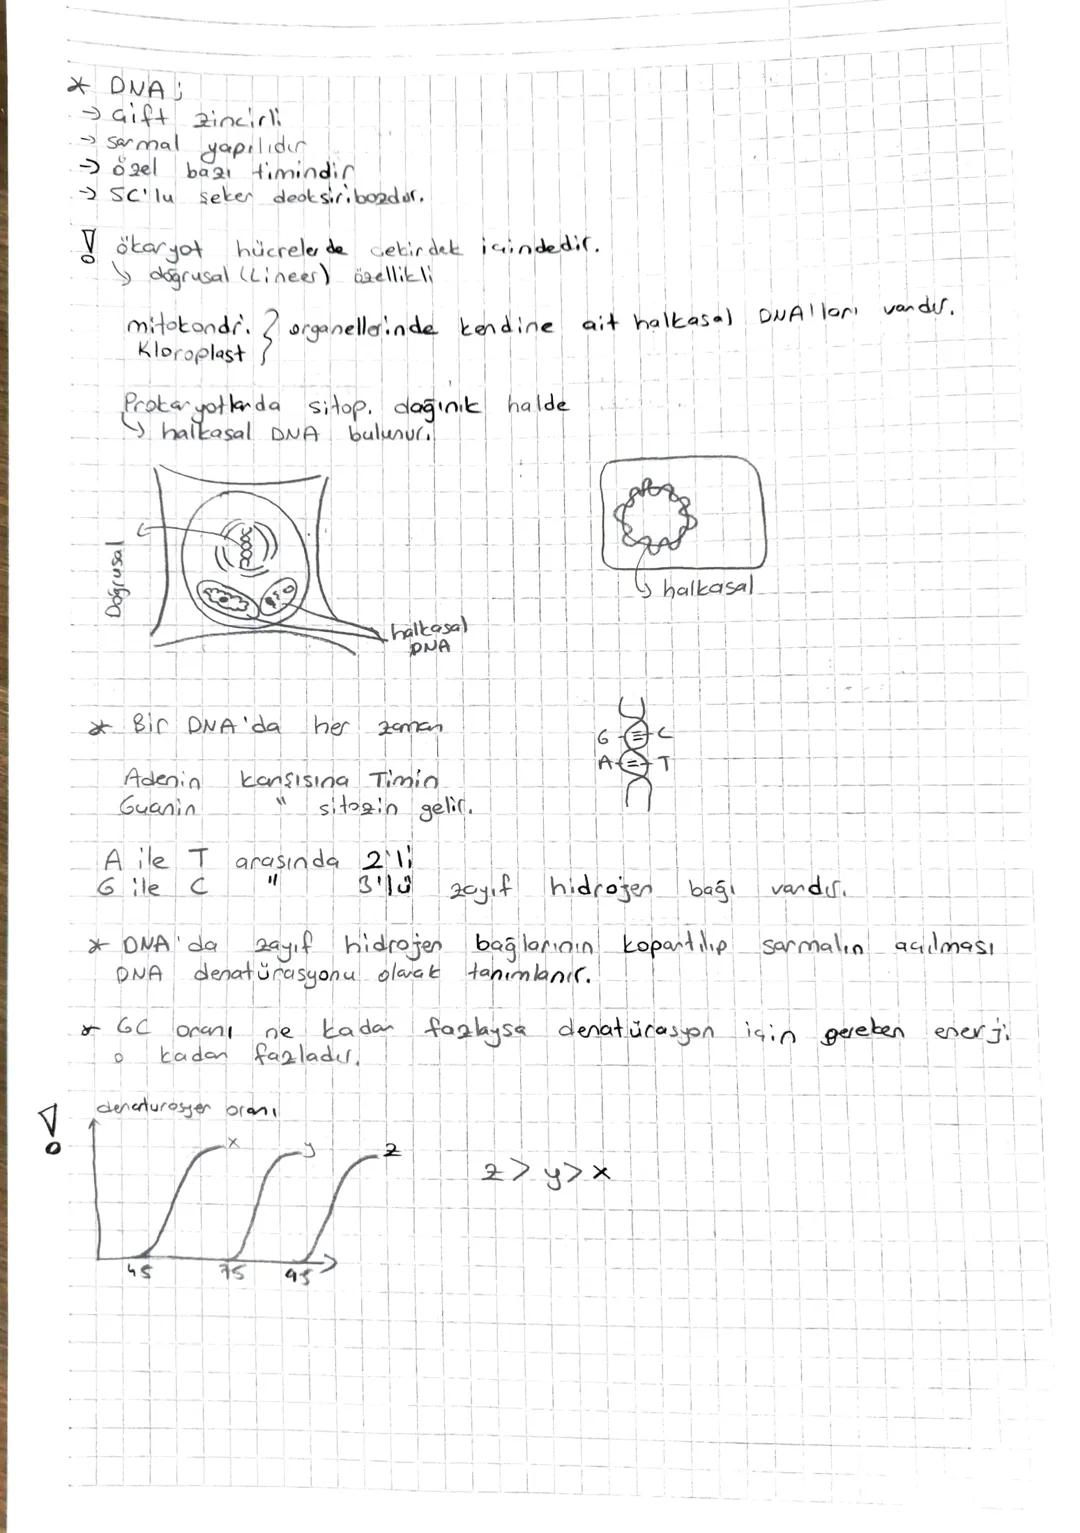 * DNA;
→ Çift zincirli
→ sarmal yapılıdır
→ özel bazı timindir
→ 5C'lu şeker deoksiribozdur.
! ökaryot hücrelerde çekirdek içindedir.
↳ doğrusal (Lineer) özellikli
mitokondri. } organellerinde kendine ait halkasal DNA'ları vardır.
Kloroplast
Prokaryotlarda sitop. dağınık halde
↳ halkasal DNA bulunur.
Doğrusal
halkasal
DNA
↳ halkasal
* Bir DNA'da her zaman
G C
A T
Adenin karşısına Timin
Guanin " sitozin gelir.
A ile T arasında 2'li
G ile C " 3'lü zayıf hidrojen bağı vardır.
* DNA'da zayıf hidrojen bağlarının kopartılıp sarmalın açılması
DNA denatürasyonu olarak tanımlanır.
* GC oranı ne kadar fazlaysa denatürasyon için gereken enerji
o kadar fazladır.
! denaturasyon oranı
x y z
z > y > x
45 75 95